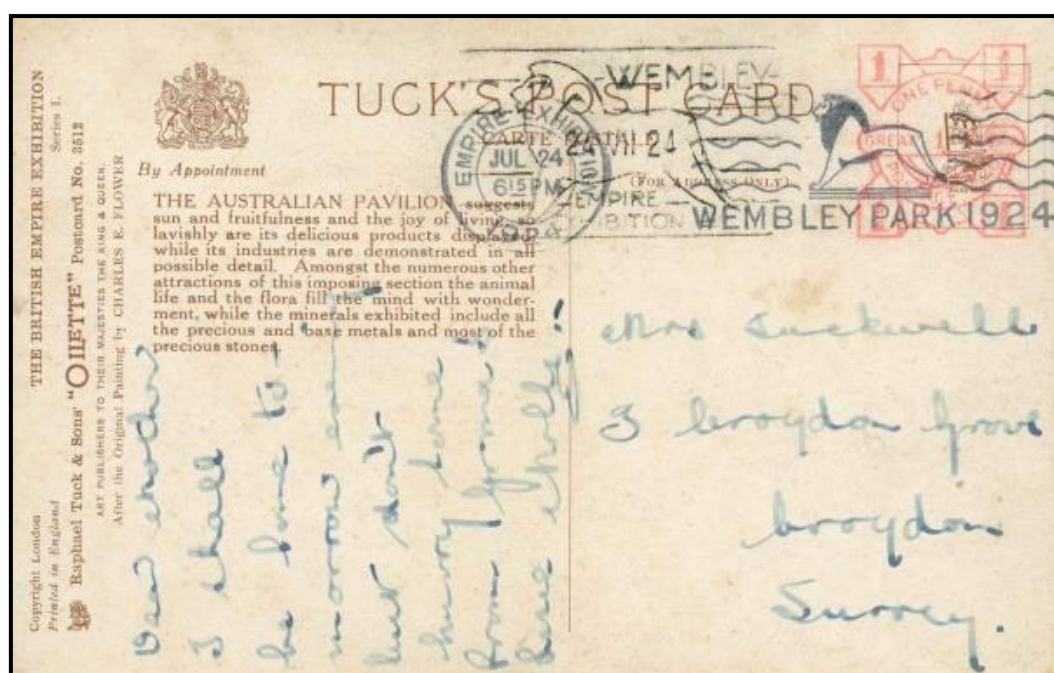 THE BRITISH EMPIRE EXHIBITION
Series 1.
Raphael Tuck & Sons' "OILETTE" Postcard No. 3512
ART PUBLISHERS TO THEIR MAJESTIES THE KING & QUEEN.
After the Original Painting by CHARLES E. FLOWER
Copyright London
Printed in England
TUCK'S POST CARD
CARTE POSTALE
(FOR ADDRESS ONLY)
By Appointment
THE AUSTRALIAN PAVILION suggests
sun and fruitfulness and the joy of living, so
lavishly are its delicious products displayed,
while its industries are demonstrated in all
possible detail. Amongst the numerous other
attractions of this imposing section the animal
life and the flora fill the mind with wonder-
ment, while the minerals exhibited include all
the precious and base metals and most of the
precious stones.
EMPIRE EXHIBITION
JUL 24
6 15 PM
WEMBLEY
24 VII 24
EMPIRE
EXHIBITION
WEMBLEY PARK 1924
1 1
ONE PENNY
GREAT
Dear Mother
I shall
be home to-
morrow
but don't
hurry home
from
Mrs
3 Croydon Grove
Croydon
Surrey.